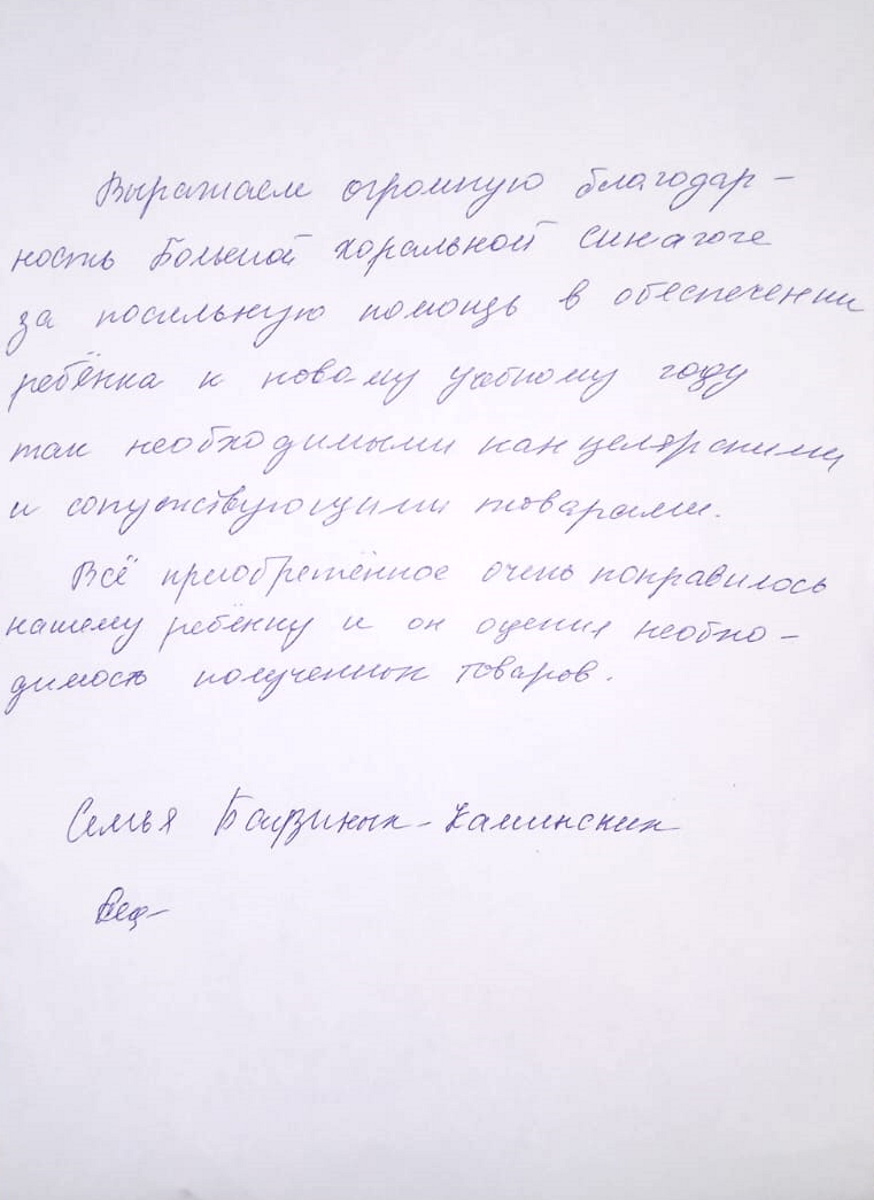 Выражаем огромную благодар-
ность Большой хоральной синагоге
за посильную помощь в обеспечении
ребёнка к новому учебному году
так необходимыми канцелярскими
и сопутствующими товарами.
Всё приобретённое очень понравилось
нашему ребёнку и он оценил необхо-
димость полученных товаров.
Семья Каминских